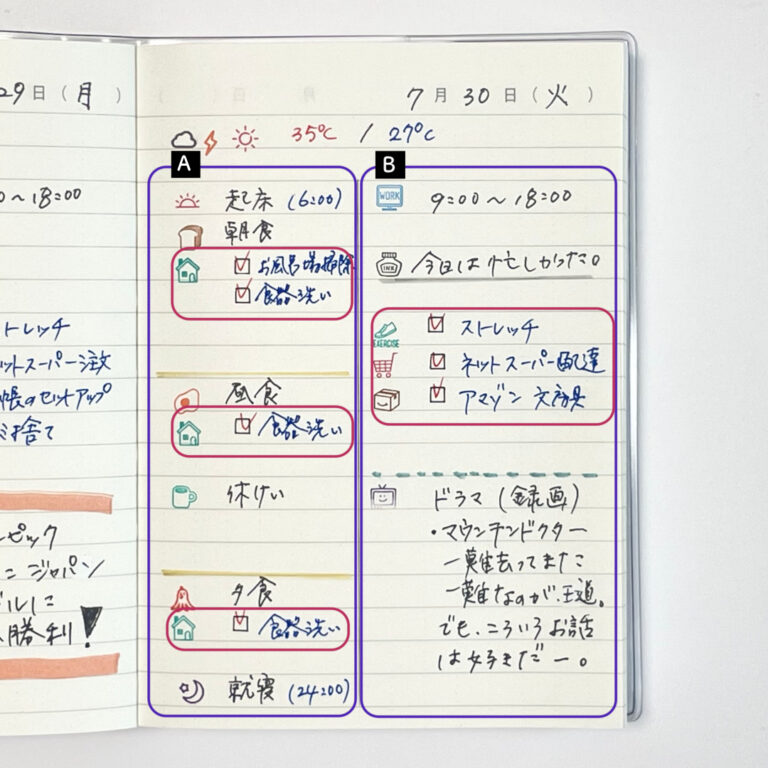 29日(月)
0〜18:00
トレッチ
ットスーパー注文
帳のセットアップ
ミ捨て
ピック
ニジャパン
ルに
勝利!
7月30日(火)
35℃ / 27℃
A
起床 (6:00)
朝食
お風呂場掃除
食器洗い
昼食
食器洗い
休けい
夕食
食器洗い
就寝 (24:00)
B
WORK 9:00〜18:00
INK 今日は忙しかった。
EXERCISE ストレッチ
ネットスーパー配達
アマゾン 文房具
ドラマ(録画)
・マウンテンドクター
一難去ってまた
一難なのが、王道。
でも、こういうお話
は好きだー。